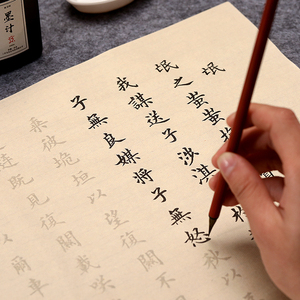 墨汁
氓
氓之蚩蚩
我謀送子涉淇
子無良媒將子無怒
秋以
乘彼垝垣以望復關不
既見復關載笑
爾車